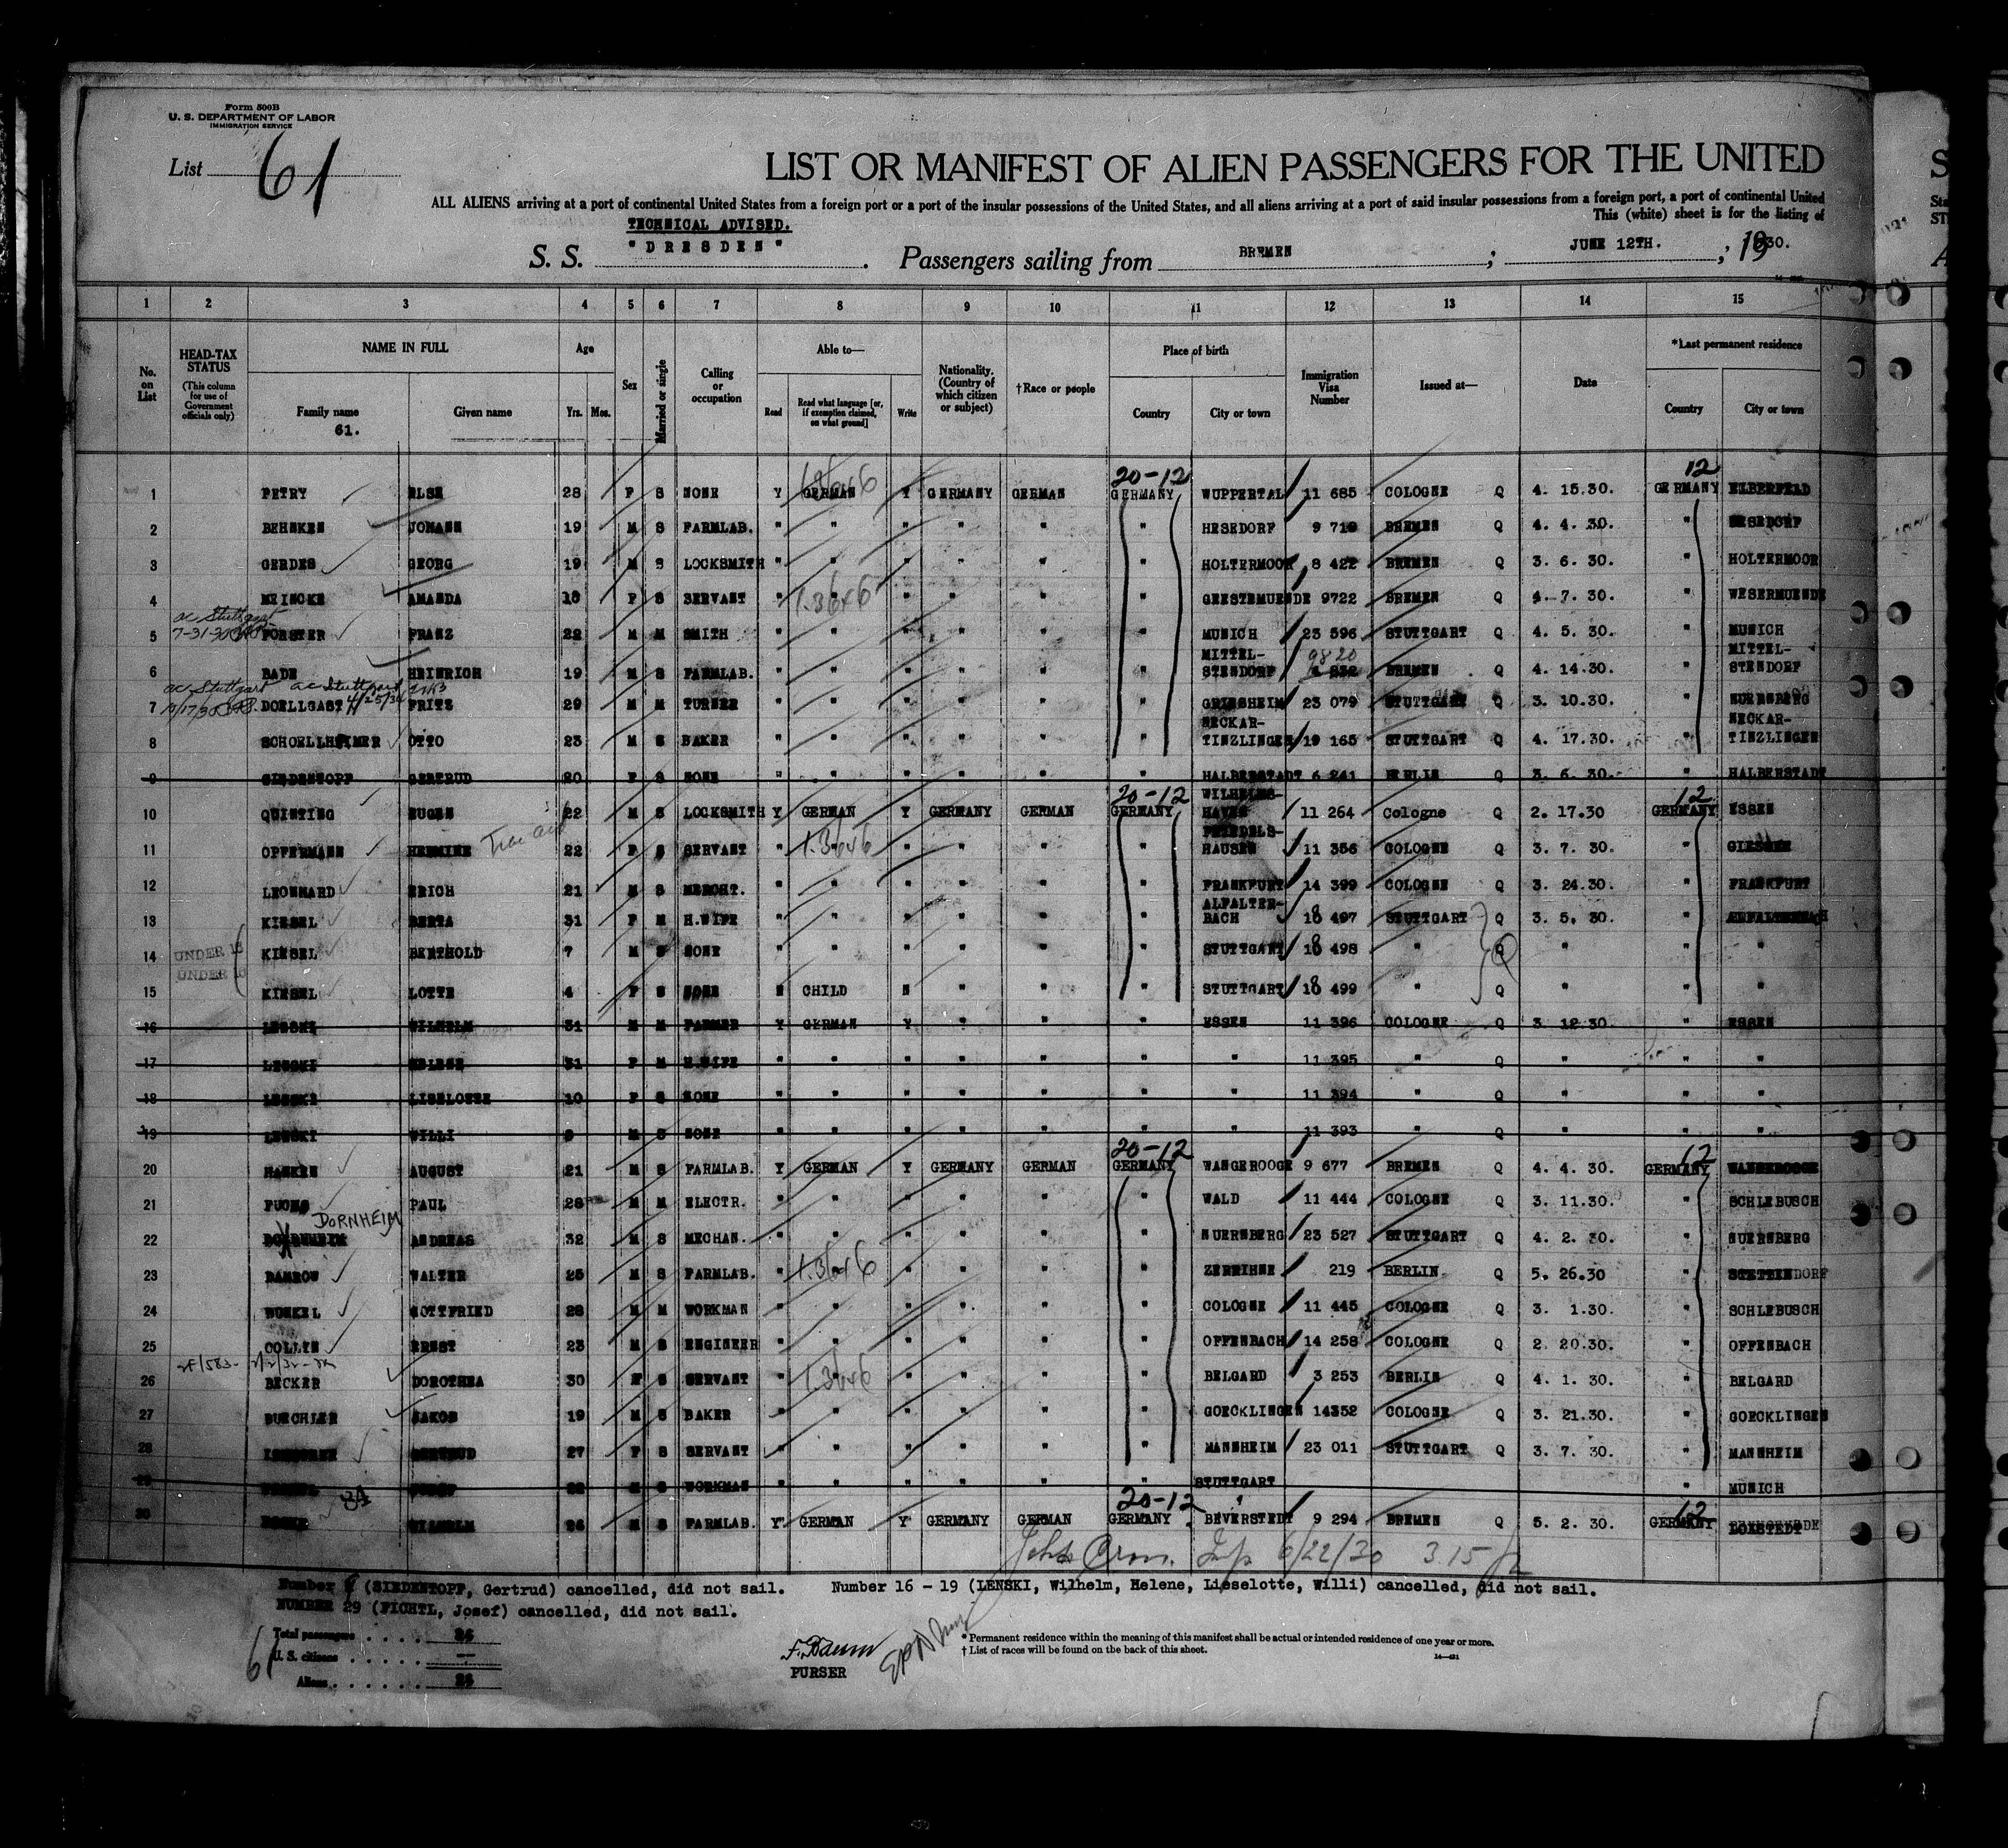 Form 500B
U. S. DEPARTMENT OF LABOR
IMMIGRATION SERVICE
List 61
LIST OR MANIFEST OF ALIEN PASSENGERS FOR THE UNITED
ALL ALIENS arriving at a port of continental United States from a foreign port or a port of the insular possessions of the United States, and all aliens arriving at a port of said insular possessions from a foreign port, a port of continental United
This (white) sheet is for the listing of
TECHNICAL ADVISED.
S. S. "DRESDEN". Passengers sailing from BREMEN ; JUNE 12TH. , 1930.
1 2 3 4 5 6 7 8 9 10 11 12 13 14 15
No. on List
HEAD-TAX STATUS (This column for use of Government officials only)
NAME IN FULL
Family name
61.
Given name
Age
Yrs. Mos.
Sex
Married or single
Calling or occupation
Able to—
Read
Read what language [or, if exemption claimed, on what ground]
Write
Nationality. (Country of which citizen or subject)
†Race or people
Place of birth
Country
City or town
Immigration Visa Number
Issued at—
Date
*Last permanent residence
Country
City or town
20-12 12
1 PETRY ELSE 28 F S NONE Y GERMAN Y GERMANY GERMAN GERMANY WUPPERTAL 11 685 COLOGNE Q 4. 15.30. GERMANY ELBERFELD
2 BEHNKEN JOHANN 19 M S FARMLAB. " " " " " " HESEDORF 9 710 BREMEN Q 4. 4. 30. " HESEDORF
3 GERDES GEORG 19 M S LOCKSMITH " " " " " " HOLTERMOOR 8 422 BREMEN Q 3. 6. 30. " HOLTERMOOR
4 MEINCKE AMANDA 18 F S SERVANT " 1.3646 " " " " GEESTEMUENDE 9722 BREMEN Q 4. 7. 30. " WESERMUENDE
ac Stuttgart
7-31-30
5 FORSTER FRANZ 22 M M SMITH " " " " " " MUNICH 23 596 STUTTGART Q 4. 5. 30. " MUNICH
6 BADE HEINRICH 19 M S FARMLAB. " " " " " " MITTEL-STENDORF 9820 BREMEN Q 4. 14.30. " MITTEL-STENDORF
ac Stuttgart ac Stuttgart
7 DOELLGAST FRITZ 29 M M TURNER " " " " " " GRIESHEIM 23 079 STUTTGART Q 3. 10.30. " NUERNBERG
8 SCHOELLHEIMER OTTO 23 M S BAKER " " " " " " NECKAR-TINZLINGEN 19 165 STUTTGART Q 4. 17.30. " NECKAR-TINZLINGEN
9 SIEDENTOPF GERTRUD 20 F S NONE " " " " " " HALBERSTADT 6 241 BERLIN Q 3. 6. 30. " HALBERSTADT
20-12 12
10 QUINTING EUGEN 22 M S LOCKSMITH Y GERMAN Y GERMANY GERMAN GERMANY WILHELMS-HAVEN 11 264 Cologne Q 2. 17.30 GERMANY ESSEN
11 OPFERMANN HERMINE 22 F S SERVANT " 1.3646 " " " " FRIEDELS-HAUSEN 11 356 COLOGNE Q 3. 7. 30. " GIESSEN
12 LEONHARD ERICH 21 M S MERCHT. " " " " " " FRANKFURT 14 399 COLOGNE Q 3. 24.30. " FRANKFURT
13 KIESEL BERTA 31 F M H.WIFE " " " " " " ALFALTER-BACH 18 497 STUTTGART Q 3. 5. 30. " ALFALTERBACH
14 UNDER 16 KIESEL BERTHOLD 7 M S NONE " " " " " " STUTTGART 18 498 " Q " " "
UNDER 16
15 KIESEL LOTTE 4 F S NONE N CHILD N " " " STUTTGART 18 499 " Q " " "
16 LENSKI WILHELM 31 M M FARMER Y GERMAN Y " " " ESSEN 11 396 COLOGNE Q 3. 12.30. " ESSEN
17 LENSKI HELENE 31 F M H.WIFE " " " " " " " 11 395 " Q " " "
18 LENSKI LISELOTTE 10 F S NONE " " " " " " " 11 394 " Q " " "
19 LENSKI WILLI 9 M S NONE " " " " " " " 11 393 " Q " " "
20-12 12
20 HANKEN AUGUST 21 M S FARMLAB. Y GERMAN Y GERMANY GERMAN GERMANY WANGEROOGE 9 677 BREMEN Q 4. 4. 30. GERMANY WANGEROOGE
21 FUCHS PAUL 28 M M ELECTR. " " " " " " WALD 11 444 COLOGNE Q 3. 11.30. " SCHLEBUSCH
DORNHEIM
22 ANDREAS 32 M S MECHAN. " " " " " " NUERNBERG 23 527 STUTTGART Q 4. 2. 30. " NUERNBERG
23 DAMROW WALTER 25 M S FARMLAB. " 1.3646 " " " " 219 BERLIN Q 5. 26.30 "
24 GOTTFRIED 28 M M WORKMAN " " " " " " COLOGNE 11 445 COLOGNE Q 3. 1.30. " SCHLEBUSCH
25 COLLIN ERNST 23 M S ENGINEER " " " " " " OFFENBACH 14 258 COLOGNE Q 2. 20.30. " OFFENBACH
26 BECKER DOROTHEA 30 F S SERVANT " 1.3646 " " " " BELGARD 3 253 BERLIN Q 4. 1. 30. " BELGARD
27 BUECHLER JAKOB 19 M S BAKER " " " " " " GOECKLINGEN 14352 COLOGNE Q 3. 21.30. " GOECKLINGEN
28 GERTRUD 27 F S SERVANT " " " " " " MANNHEIM 23 011 STUTTGART Q 3. 7. 30. " MANNHEIM
29 WORKMAN " " " " " " STUTTGART MUNICH
20-12 12
30 WILHELM 26 M S FARMLAB. Y GERMAN Y GERMANY GERMAN GERMANY BEVERSTEDT 9 294 BREMEN Q 5. 2. 30. GERMANY LOXSTEDT
6/22/30 315
Number 9 (SIEDENTOPF, Gertrud) cancelled, did not sail. Number 16 - 19 (LENSKI, Wilhelm, Helene, Lieselotte, Willi) cancelled, did not sail.
NUMBER 29 (FICHTL, Josef) cancelled, did not sail.
Total passengers . . . . 24
U. S. citizens . . . . . —
Aliens . . . . . . 24
61
PURSER
* Permanent residence within the meaning of this manifest shall be actual or intended residence of one year or more.
† List of races will be found on the back of this sheet.